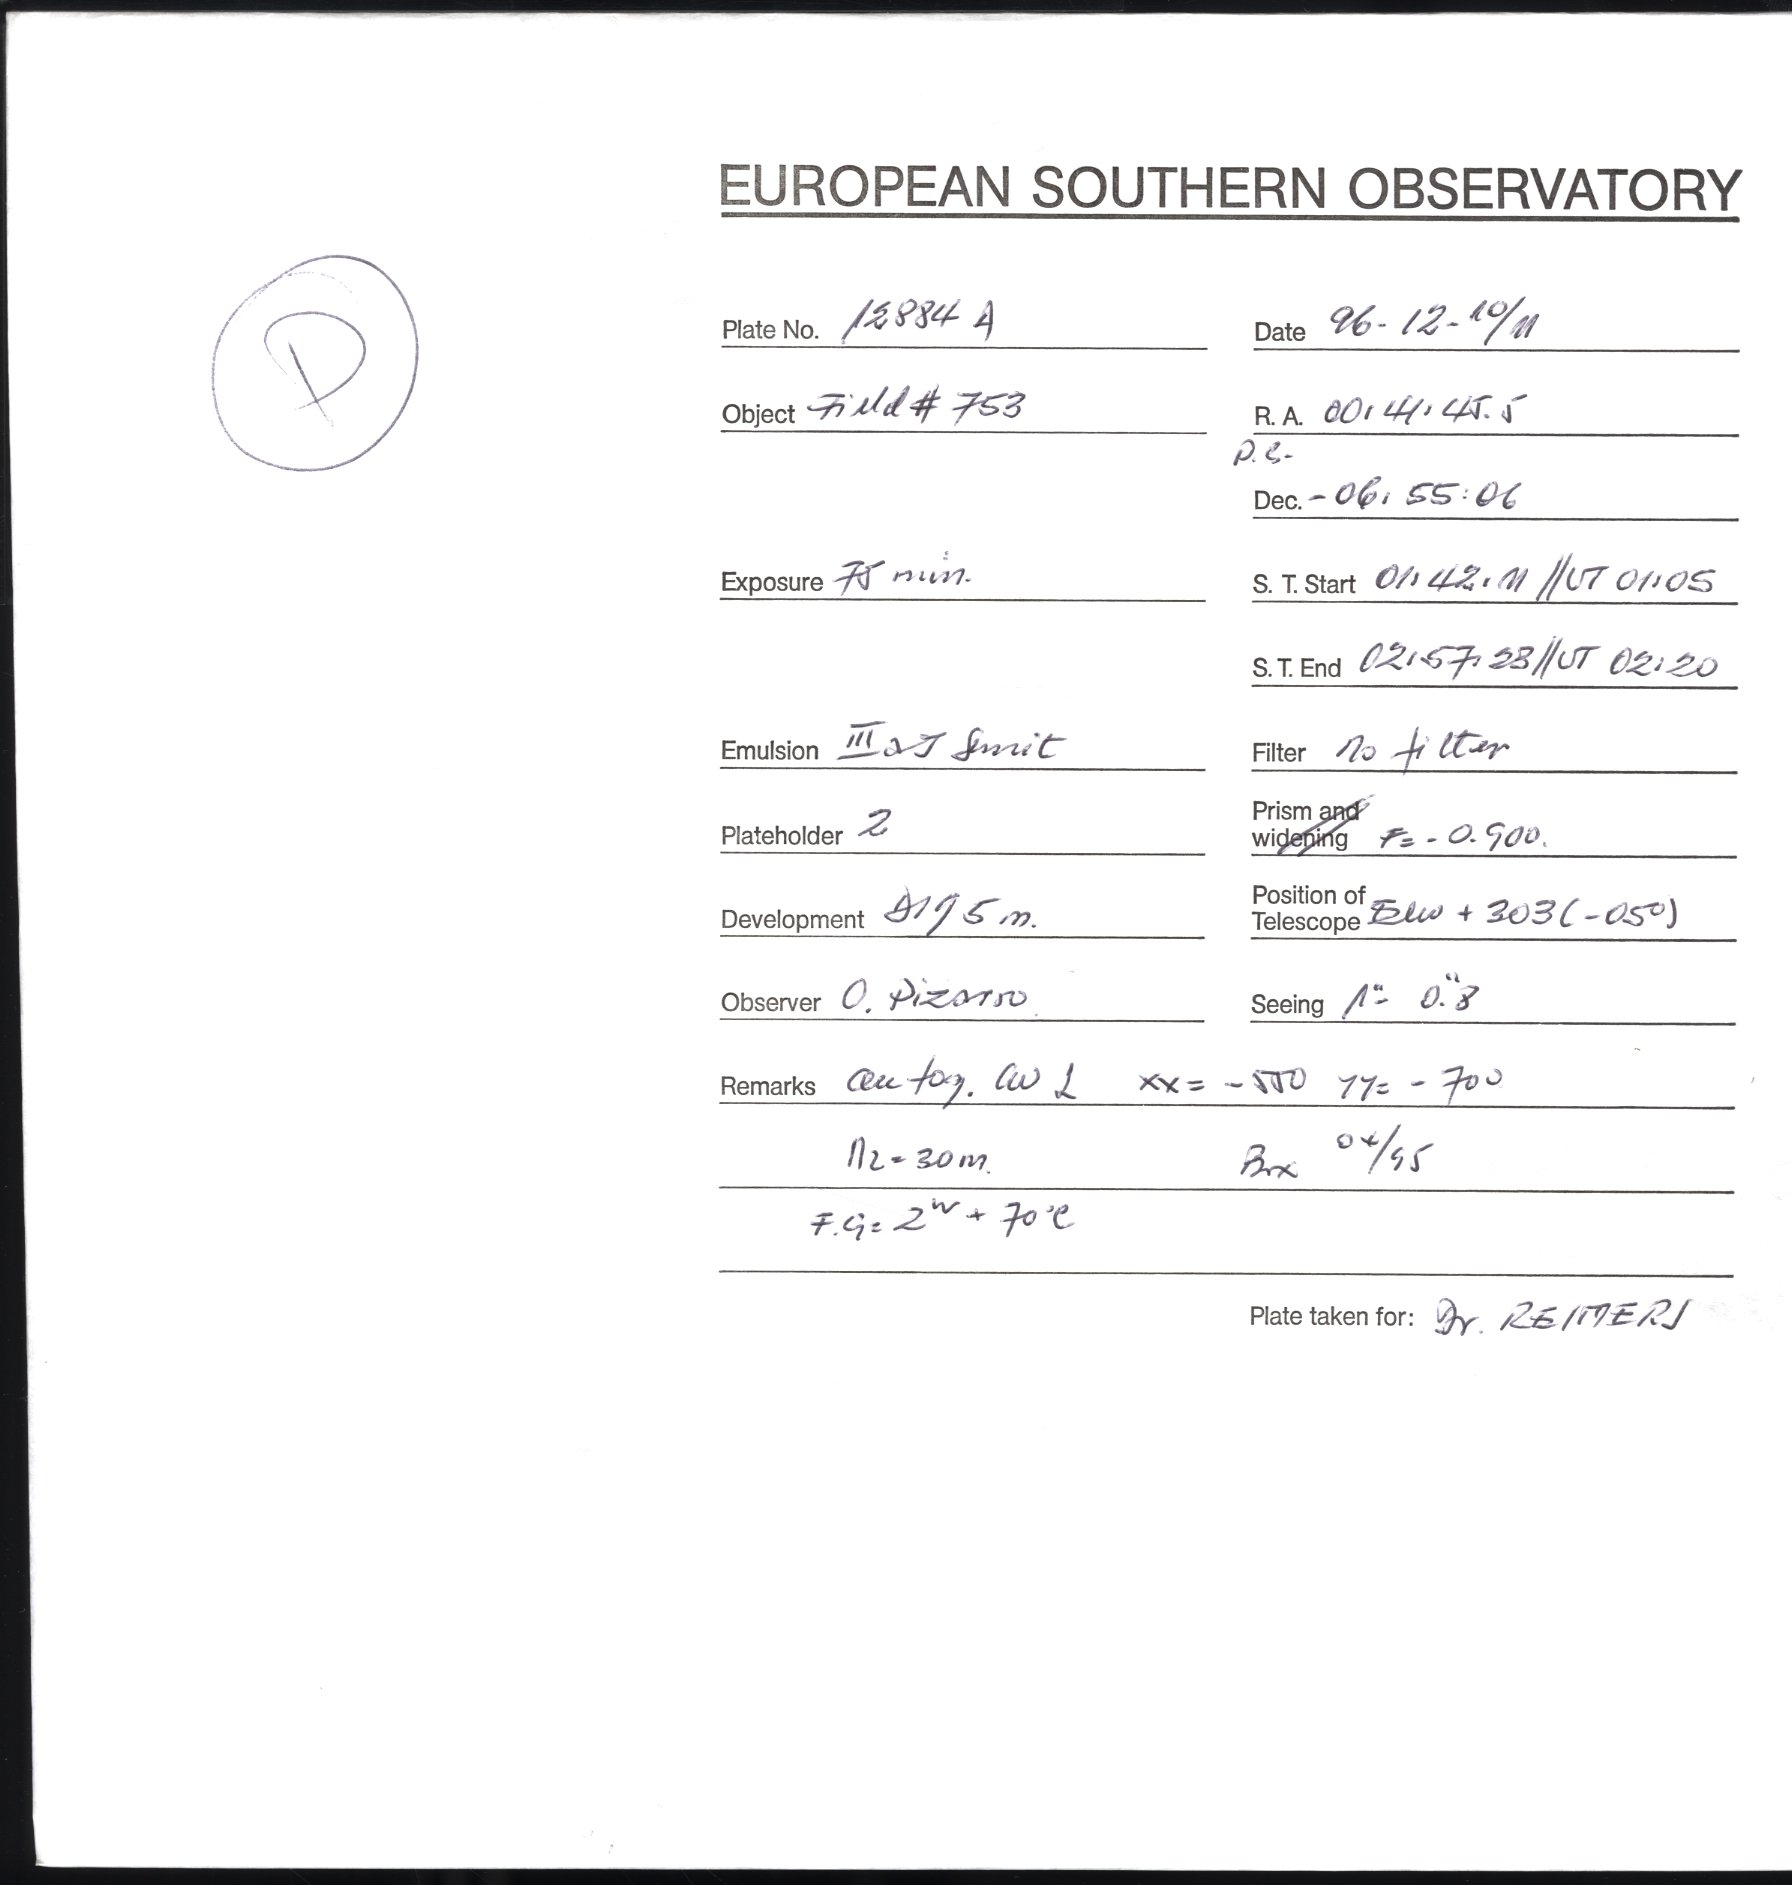 EUROPEAN SOUTHERN OBSERVATORY
P
Plate No. 12884 A
Date 96-12-10/11
Object Field # 753
R. A. 00:41:45.5
Dec. -06:55:06
Exposure 75 min.
S. T. Start 01:42:11 // UT 01:05
S. T. End 02:57:28 // UT 02:20
Emulsion III aJ
Filter no filter
Plateholder 2
Prism and widening F= -0.900.
Development D19 5 m.
Position of Telescope + 303 (-050)
Observer O. Pizarro
Seeing 1"- 0."8
Remarks xx= -550 yy= -700
N2=30m. Box 04/95
F.G= 2W + 70°C
Plate taken for: Dr. REIMERS